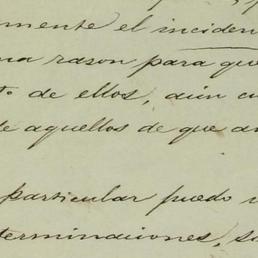 mente el inciden
na razon para que
to. de ellos, aún cu
de aquellos de que an
particular puedo
terminaciones, su